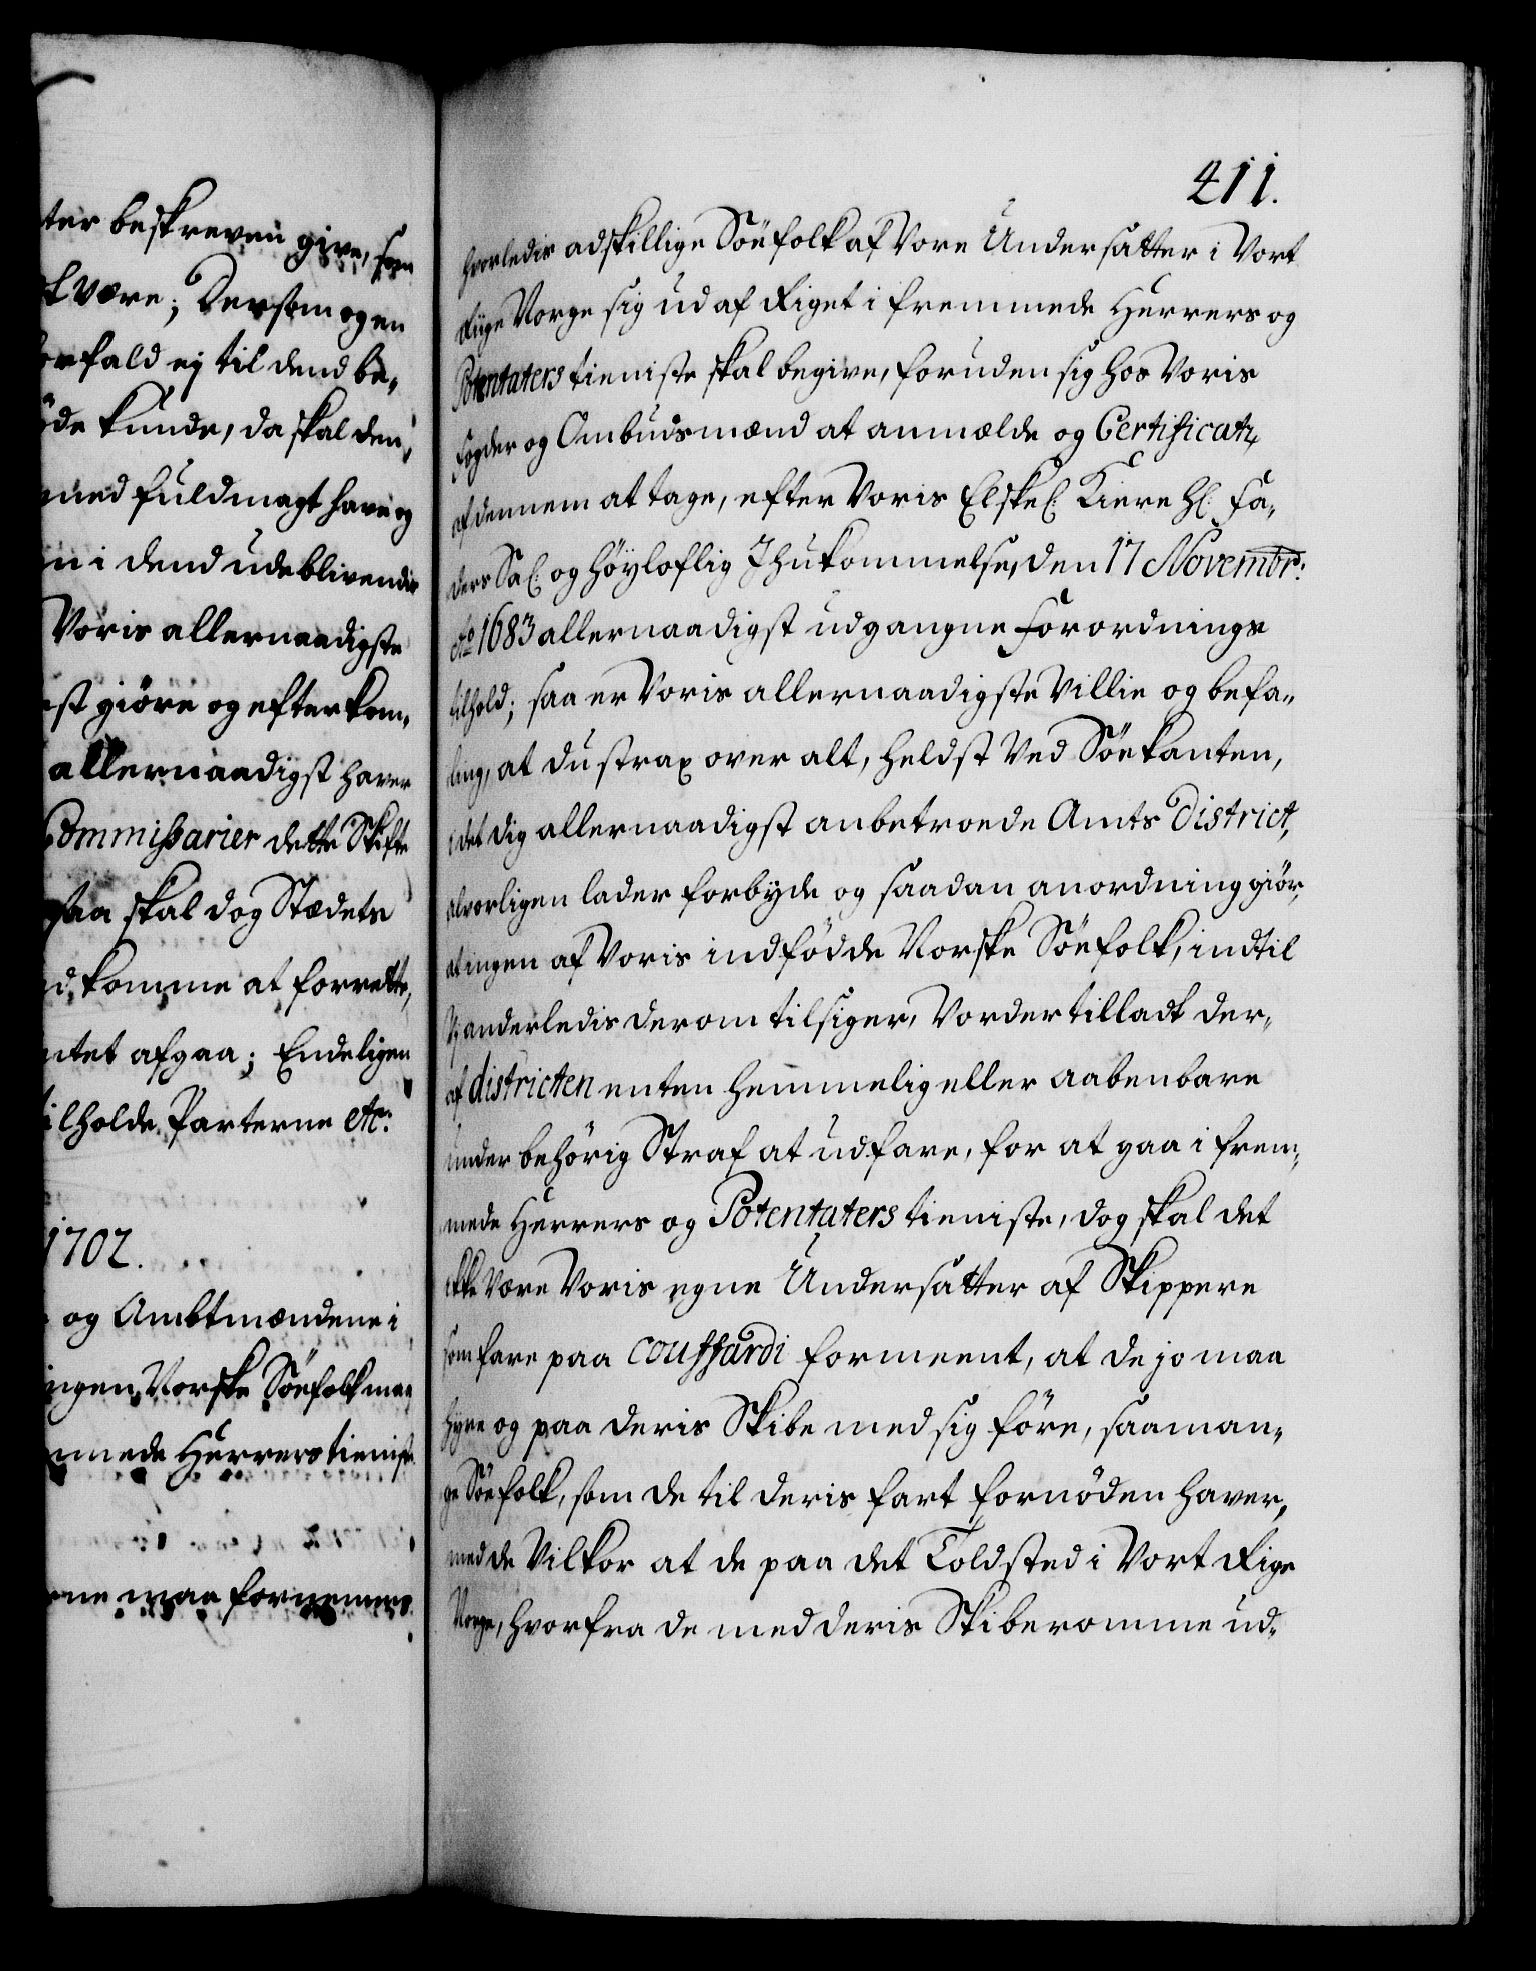 ter beskreven give, som
l være; Dersom og en
forfald ej til dend be-
øde kunde, da skal den,
med fuldmagt have og
n i dend udeblivendis
Voris allernaadigste
st giöre og efterkom-
allernaadigst haver
Commissarier dette Skifte
saa skal dog Stædets
d komme at forrette,
ntet afgaa; Endeligen
ilholde Parterne etc:
1702.
og Ambtmændene i
ingen Norske Söefolk maa
mmede Herrers tieniste
rne maa fornemme
411.
hvorledis adskillige Söefolk af Vore Undersatter i Vort
Riige Norge sig ud af Riget i fremmede Herrers og
Potentaters tieniste skal begive, foruden sig hos Voris
Fogder og Ombudsmænd at anmælde og Certificats,
af dennem at tage, efter Voris Elskel: Kiere Hl: Fa-
ders Sal: og höyloflig Ihukommelse, den 17 Novembr:
Ao 1683 allernaadigst udgangne Forordnings
tilhold; saa er Voris allernaadigste Villie og befa-
ling, at du strax over alt, heldst ved Söekanten,
i det dig allernaadigst anbetroede Amts District,
alvorligen lader forbyde og saadan anordning giör,
at ingen af Voris indfödde Norske Söefolk, indtil
Vj anderledis derom tilsiger, Vorder tilladt der-
af districten enten hemmelig eller aabenbare
under behörig Straf at udfare, for at gaa i frem-
mede Herrers og Potentaters tieniste, dog skal det
ikke være Voris egne Undersatter af Skippere
som fare paa couffardi formeent, at de jo maa
hyre og paa deris Skibe med sig före, saa man-
ge Söefolk, som de til deris fart fornöden haver,
med de Vilkor at de paa det Toldsted i Vort Rige
Norge, hvorfra de med deris Skiberomme ud-